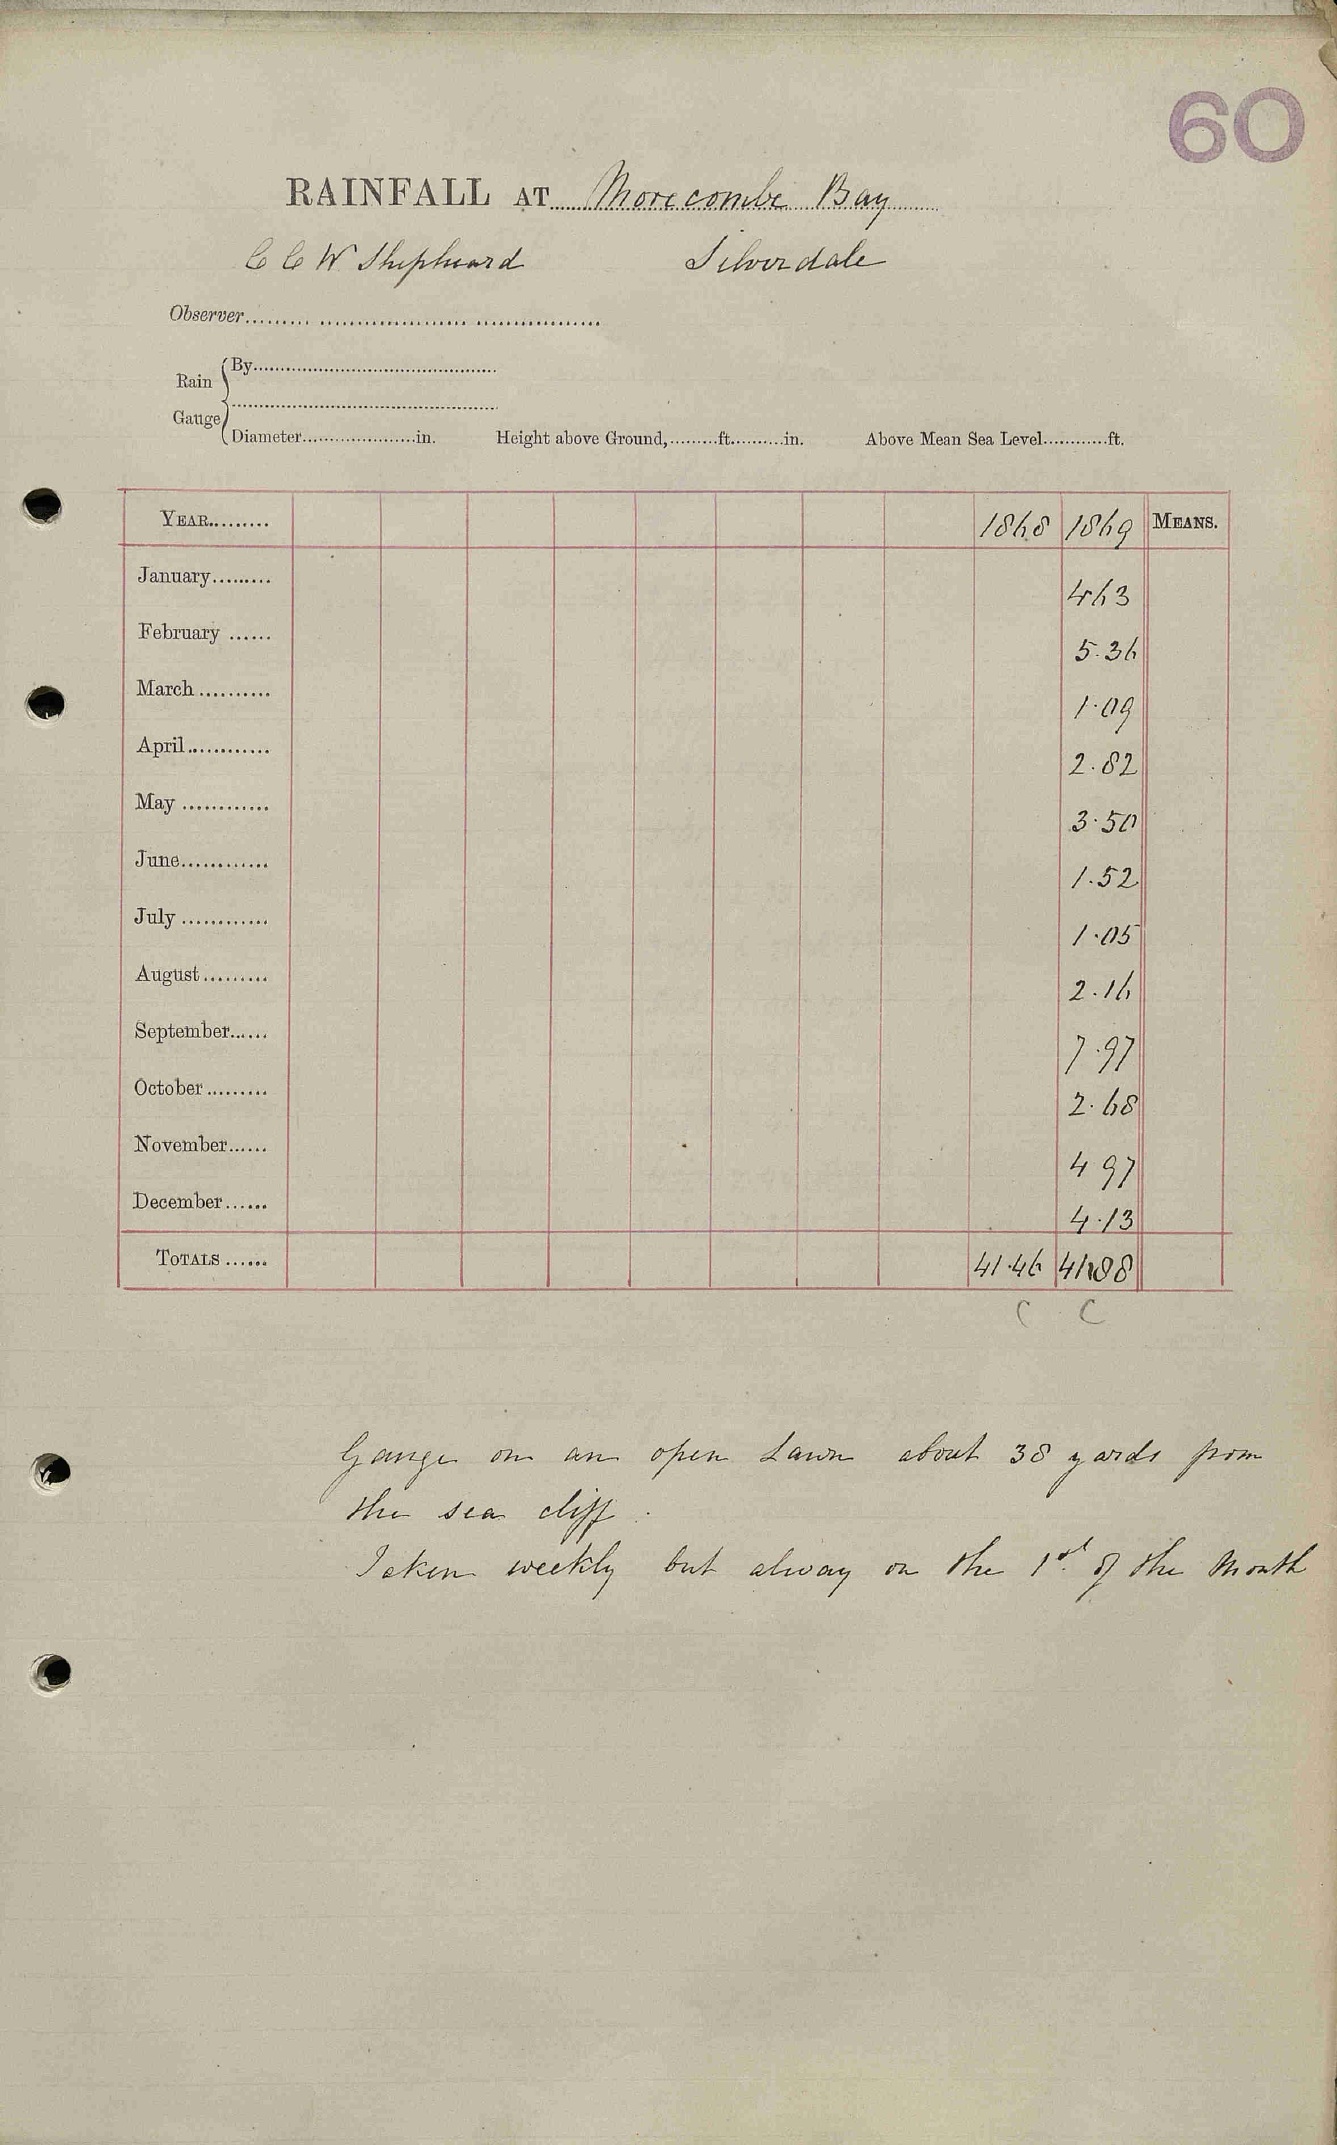 60
RAINFALL AT Morecombe Bay
C C W Shipheard Silverdale
Observer
Rain Gauge { By
Diameter in. Height above Ground, ft. in. Above Mean Sea Level ft.
YEAR 1868 1869 MEANS.
January 4 63
February 5.36
March 1.09
April 2.82
May 3.50
June 1.52
July 1.05
August 2.16
September 7.97
October 2.68
November 4 97
December 4.13
TOTALS 41.46 41.88
C C
Gauge on an open Lawn about 38 yards from
the sea cliff.
Taken weekly but alway on the 1st of the Month